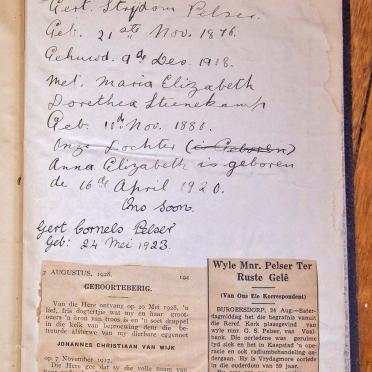 Gert. Strydom Pelser.
Geb. 21ste Nov. 1876.
Gehuwd. 9de Des. 1918.
Met. Maria Elizabeth
Dorothea Stienekamp
Geb. 18de Nov. 1886.
Onze Dochter (is Geboren)
Anna Elizabeth is geboren
de 16de April 1920.
Ons Soon.
Gert Cornels Pelser
Geb: 24 Mei 1923.
7 AUGUSTUS, 1928. 194
GEBOORTEBERIG.
Van die Here ontvang op 20 Mei 1928, 'n
lief, fris dogtertjie wat my en haar groot-
ouers 'n bron van troos is en 'n soet drappel
in die kelk van beproewing deur die be-
treurde afsterwe van my dierbare eggenoot
JOHANNES CHRISTIAAN VAN WIJK
op 7 November 1927.
Die Here gee dat sy die volle naam van
Wyle Mnr. Pelser Ter
Ruste Gelê
(Van Ons Eie Korrespondent)
BURGERSDORP, 24 Aug.—Sater-
dagmiddag het die begrafnis vanuit
die Geref. Kerk plaasgevind van
wyle mnr. G. S. Pelser, van Vaal-
bank. Die oorledene was geruime
tyd siek en het in Kaapstad 'n ope-
rasie en ook radiumbehandeling on-
dergaan. Hy is Vrydagmôre oorlede
in die ouderdom van 59 jaar.